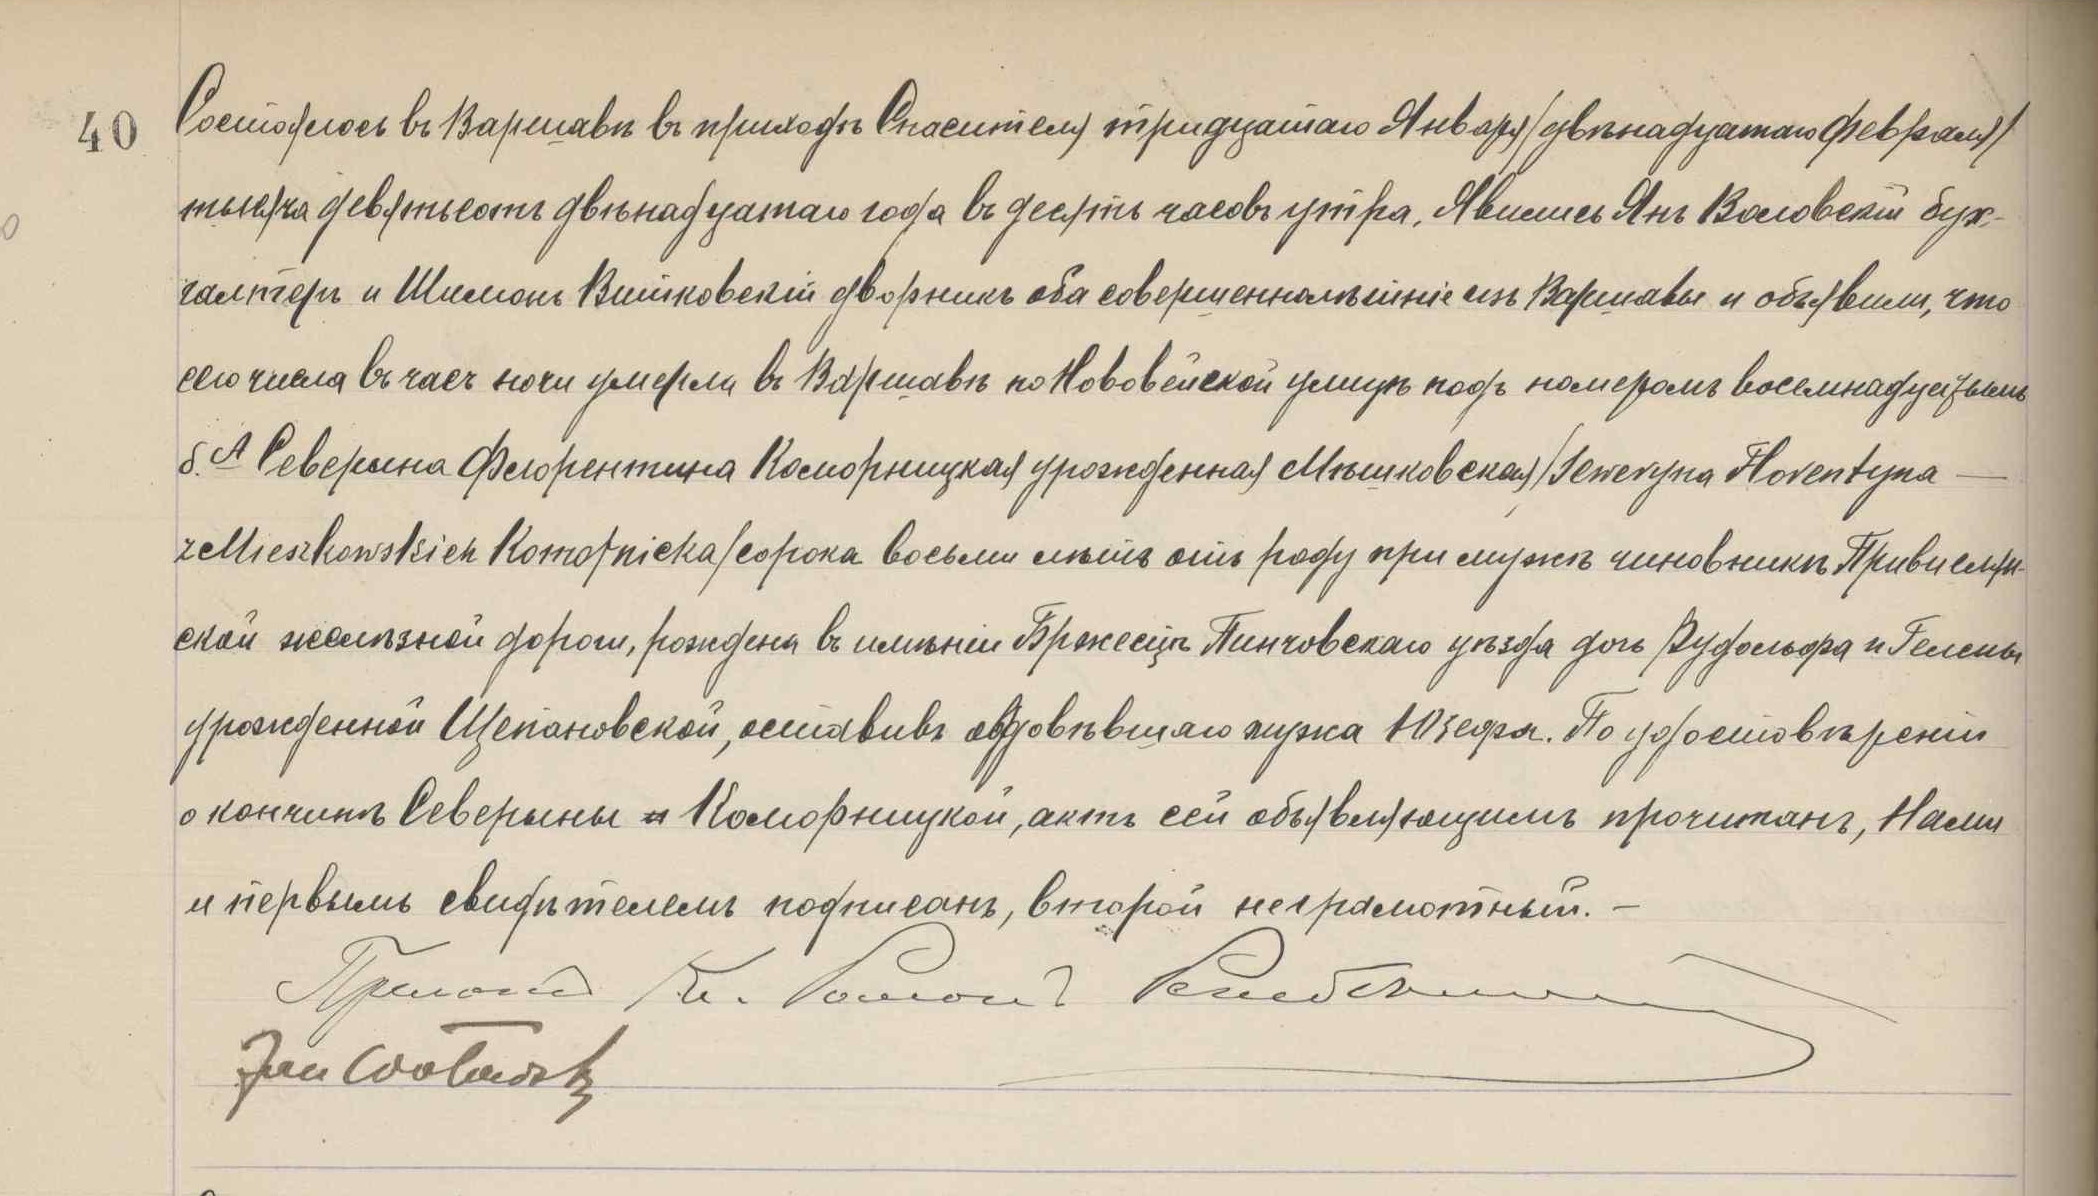 40
Состоялось въ Варшавѣ въ приходѣ Спасителя тридцатаго Января/двѣнадцатаго Февраля/
тысяча девятьсотъ двѣнадцатаго года въ десять часовъ утра. Явились Янъ Воловскій бух-
галтеръ и Шимонъ Витковскій дворникъ оба совершеннолѣтніе изъ Варшавы и объявили, что
сего числа въ часъ ночи умерла въ Варшавѣ по Нововейской улицѣ подъ номеромъ восемнадцатымъ
б. А Северына Флорентина Коморницкая урожденная Мѣшковская/Seweryna Florentyna —
z Mieszkowskich Komornicka/сорока восьми лѣтъ отъ роду при мужѣ чиновникѣ Привислян-
ской желѣзной дороги, рождена въ имѣніи Бржесцѣ Пинчовскаго уѣзда дочь Рудольфа и Гелены
урожденной Щепановской, оставивъ овдовѣвшаго мужа Юзефа. По удостовѣреніи
о кончинѣ Северыны Коморницкой, актъ сей объявляющимъ прочитанъ, Нами
и первымъ свидѣтелемъ подписанъ, второй неграмотный. —
Кс. Романъ
Jan Wołowski